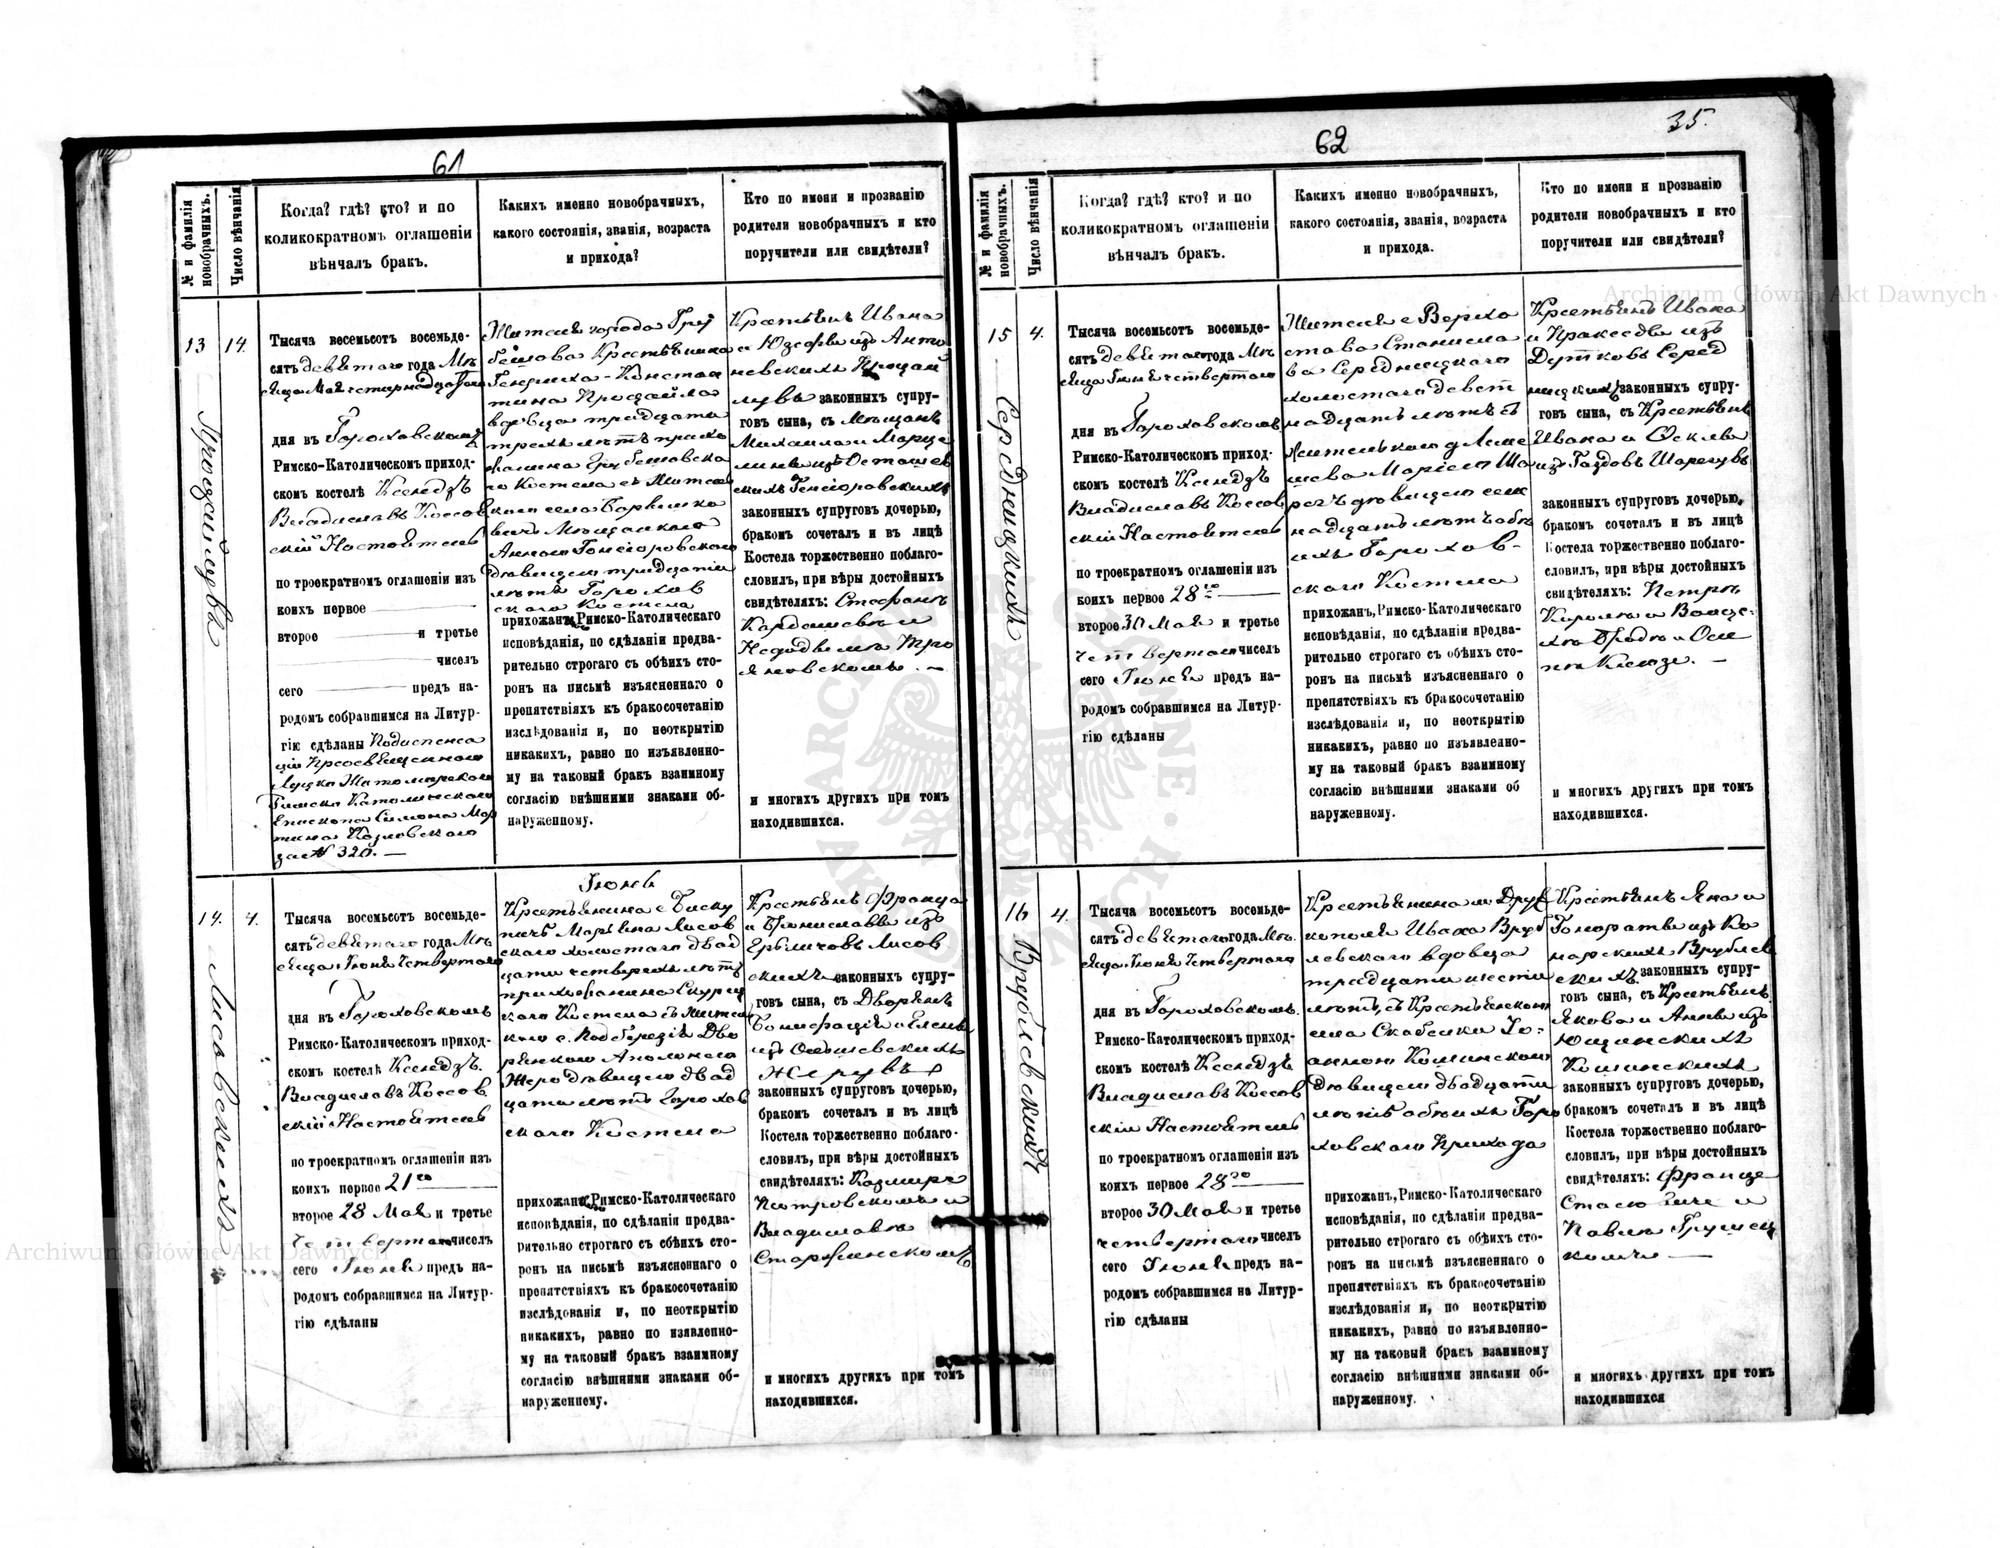 61
№ и фамилія новобрачныхъ.
Число вѣнчанія
Когда? гдѣ? кто? и по
коликократномъ оглашеніи
вѣнчалъ бракъ.
Какихъ именно новобрачныхъ,
какого состоянія, званія, возраста
и прихода?
Кто по имени и прозванію
родители новобрачныхъ и кто
поручители или свидѣтели?
13
14.
Тысяча восемьсотъ восемьде-
сятъ девятаго года Мѣ
сяца Мая четырнадцатаго
дня въ Гороховскомъ
Римско-Католическомъ приход-
скомъ костелѣ Ксендзъ
Владиславъ Коссов
скій Настоятель
по троекратномъ оглашеніи изъ
коихъ первое
второе и третье
чиселъ
сего предъ на-
родомъ собравшимся на Литур-
гію сдѣланы
Луцко Житомирского
Римско Католического
Епископа Симона Мар
тина Козловского
за № 320. —
Жителя города Гру
бешова Крестьянина
вдовца тридцати
трехъ лѣтъ прихо
жанина Грубешовска
го Костела съ Жител
дѣвицею тридцати
лѣтъ Горохов
ского Костела
прихожанъ, Римско-Католическаго
исповѣданія, по сдѣланіи предва-
рительно строгаго съ обѣихъ сто-
ронъ на письмѣ изъясненнаго о
препятствіяхъ къ бракосочетанію
изслѣдованія и, по неоткрытію
никакихъ, равно по изъявленно-
му на таковый бракъ взаимному
согласію внѣшними знаками об-
наруженному.
Крестьянъ Ивана
законныхъ супру-
говъ сына, съ Мѣщанъ
Михаила и Марце
законныхъ супруговъ дочерью,
бракомъ сочеталъ и въ лицѣ
Костела торжественно поблаго-
словилъ, при вѣры достойныхъ
свидѣтеляхъ:
и многихъ другихъ при томъ
находившихся.
14.
4.
Лисовскихъ
Тысяча восемьсотъ восемьде-
сятъ девятаго года Мѣ
сяца Іюня Четвертого
дня въ Гороховскомъ
Римско-Католическомъ приход-
скомъ костелѣ Ксендзъ
Владиславъ Коссов
скій Настоятель
по троекратномъ оглашеніи изъ
коихъ первое 21го
второе 28 Мая и третье
четвертого чиселъ
сего Іюня предъ на-
родомъ собравшимся на Литур-
гію сдѣланы
Іюнь
Крестьянина с Биску
пичъ Марьяна Лисов
ского холостого двад
цати четырехъ лѣтъ
дѣвицею двад
цати лѣтъ Горохов
ского Костела
прихожанъ, Римско-Католическаго
исповѣданія, по сдѣланіи предва-
рительно строгаго съ обѣихъ сто-
ронъ на письмѣ изъясненнаго о
препятствіяхъ къ бракосочетанію
изслѣдованія и, по неоткрытію
никакихъ, равно по изявленно-
му на таковый бракъ взаимному
согласію внѣшними знаками об-
наруженному.
Крестьянъ Франца
и Брониславы изъ
Лисов
скихъ законныхъ супру-
говъ сына, съ Дворянъ
законныхъ супруговъ дочерью,
бракомъ сочеталъ и въ лицѣ
Костела торжественно поблаго-
словилъ, при вѣры достойныхъ
свидѣтеляхъ:
Петровскомъ и
Владиславѣ
и многихъ другихъ при томъ
находившихся.
62
35.
№ и фамилія новобрачныхъ.
Число вѣнчанія
Когда? гдѣ? кто? и по
коликократномъ оглашеніи
вѣнчалъ бракъ.
Какихъ именно новобрачныхъ,
какого состоянія, званія, возраста
и прихода.
Кто по имени и прозванію
родители новобрачныхъ и кто
поручители или свидѣтели?
15
4.
Середницкихъ
Тысяча восемьсотъ восемьде-
сятъ девятого года Мѣ
сяца Іюня четвертого
дня въ Гороховскомъ
Римско-Католическомъ приход-
скомъ костелѣ Ксендзъ
Владиславъ Коссов
скій Настоятель
по троекратномъ оглашеніи изъ
коихъ первое 28го
второе 30 Мая и третье
четвертого чиселъ
сего Іюня предъ на-
родомъ собравшимся на Литур-
гію сдѣланы
Жителя с Верхо
става Станисла
ва Середницкого
холостого девят
надцать лѣтъ съ
дѣвицею сем
надцать лѣтъ обо
ихъ Горохов-
ского Костела
прихожанъ, Римско-Католическаго
исповѣданія, по сдѣланіи предва-
рительно строгаго съ обѣихъ сто-
ронъ на письмѣ изъясненнаго о
препятствіяхъ къ бракосочетанію
изслѣдованія и, по неоткрытію
никакихъ, равно по изъявленно-
му на таковый бракъ взаимному
согласію внѣшними знаками об
наруженному.
Крестьянъ Ивана
и Пракседы изъ
Серед
ницкихъ законныхъ супру-
говъ сына, съ Крестьянъ
Ивана и
законныхъ супруговъ дочерью,
бракомъ сочеталъ и въ лицѣ
Костела торжественно поблаго-
словилъ, при вѣры достойныхъ
свидѣтеляхъ: Петрѣ
и многихъ другихъ при томъ
находившихся.
16
4.
Врублевскихъ
Тысяча восемьсотъ восемьде-
сятъ девятого года Мѣ.
сяца Іюня Четвертого
дня въ Гороховскомъ.
Римско-Католическомъ приход-
скомъ костелѣ Ксендзъ
Владиславъ Коссов
скій Настоятель
по троекратномъ оглашеніи изъ
коихъ первое 28го
второе 30 Мая и третье
четвертого чиселъ
сего Іюня предъ на-
родомъ собравшимся на Литур-
гію сдѣланы
Крестьянина м Друж
кополя Ивана Вруб
левского вдовца
тридцати шести
лѣтъ, съ Крестьянкою
дѣвицею двадцати
лѣтъ обоихъ Горо
ховского Прихода
прихожанъ, Римско-Католическаго
исповѣданія, по сдѣланіи предва-
рительно строгаго съ обѣихъ сто-
ронъ на письмѣ изъясненнаго о
препятствіяхъ къ бракосочетанію
изслѣдованія и, по неоткрытію
никакихъ, равно по изъявленно-
му на таковый бракъ взаимному
согласію внѣшними знаками об-
наруженному.
Крестьянъ Яна и
Врублев
скихъ законныхъ супру-
говъ сына, съ Крестьянъ
Якова и Анны изъ
законныхъ супруговъ дочерью,
бракомъ сочеталъ и въ лицѣ
Костела торжественно поблаго-
словилъ, при вѣры достойныхъ
свидѣтеляхъ:
и многихъ другихъ при томъ
находившихся
Archiwum Główne Akt Dawnych
Archiwum Główne Akt Dawnych